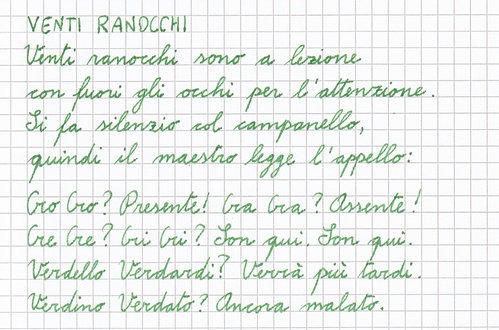 VENTI RANOCCHI
Venti ranocchi sono a lezione
con fuori gli occhi per l'attenzione.
Si fa silenzio col campanello,
quindi il maestro legge l'appello:
Cro Cro? Presente! Cra Cra? Assente!
Cre Cre? Cri Cri? Son qui. Son qui.
Verdello Verdardi? Verrà più tardi.
Verdino Verdato? Ancora malato.